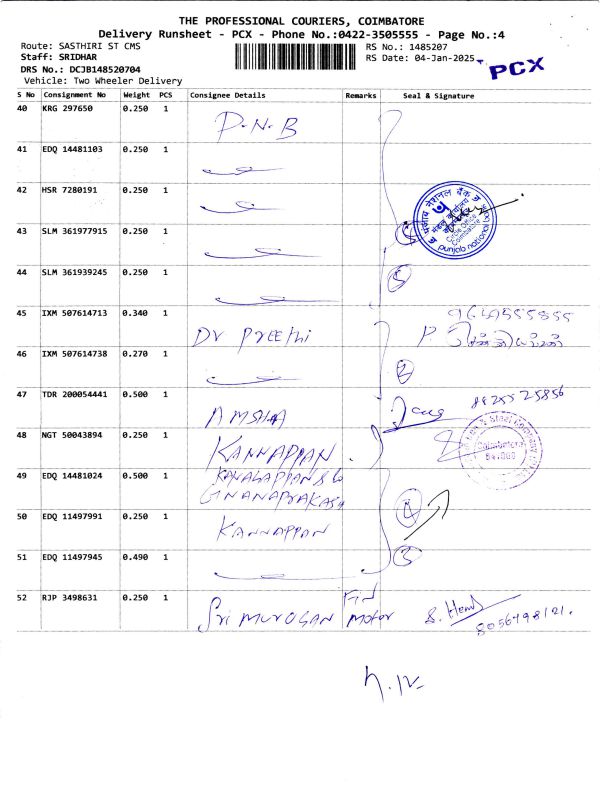 THE PROFESSIONAL COURIERS, COIMBATORE
Delivery Runsheet - PCX - Phone No.:0422-3505555 - Page No.:4
Route: SASTHIRI ST CMS
RS No.: 1485207
Staff: SRIDHAR
RS Date: 04-Jan-2025
PCX
DRS No.: DCJB148520704
Vehicle: Two Wheeler Delivery
S No Consignment No Weight PCS Consignee Details Remarks Seal & Signature
40 KRG 297650 0.250 1 P.N.B
41 EDQ 14481103 0.250 1
42 HSR 7280191 0.250 1
पंजाब नैशनल बैंक
Circle Office
Coimbatore
punjab national bank
43 SLM 361977915 0.250 1
44 SLM 361939245 0.250 1 5
45 IXM 507614713 0.340 1 Dr Preethi
46 IXM 507614738 0.270 1 2
47 TDR 200054441 0.500 1 AMSHA 8825525856
48 NGT 50043894 0.250 1 KANNAPPAN
Steel Company
Coimbatore
49 EDQ 14481024 0.500 1
50 EDQ 11497991 0.250 1 KANNAPPAN
51 EDQ 11497945 0.490 1 3
52 RJP 3498631 0.250 1 Sri MUROGAN Motor
8056798121.